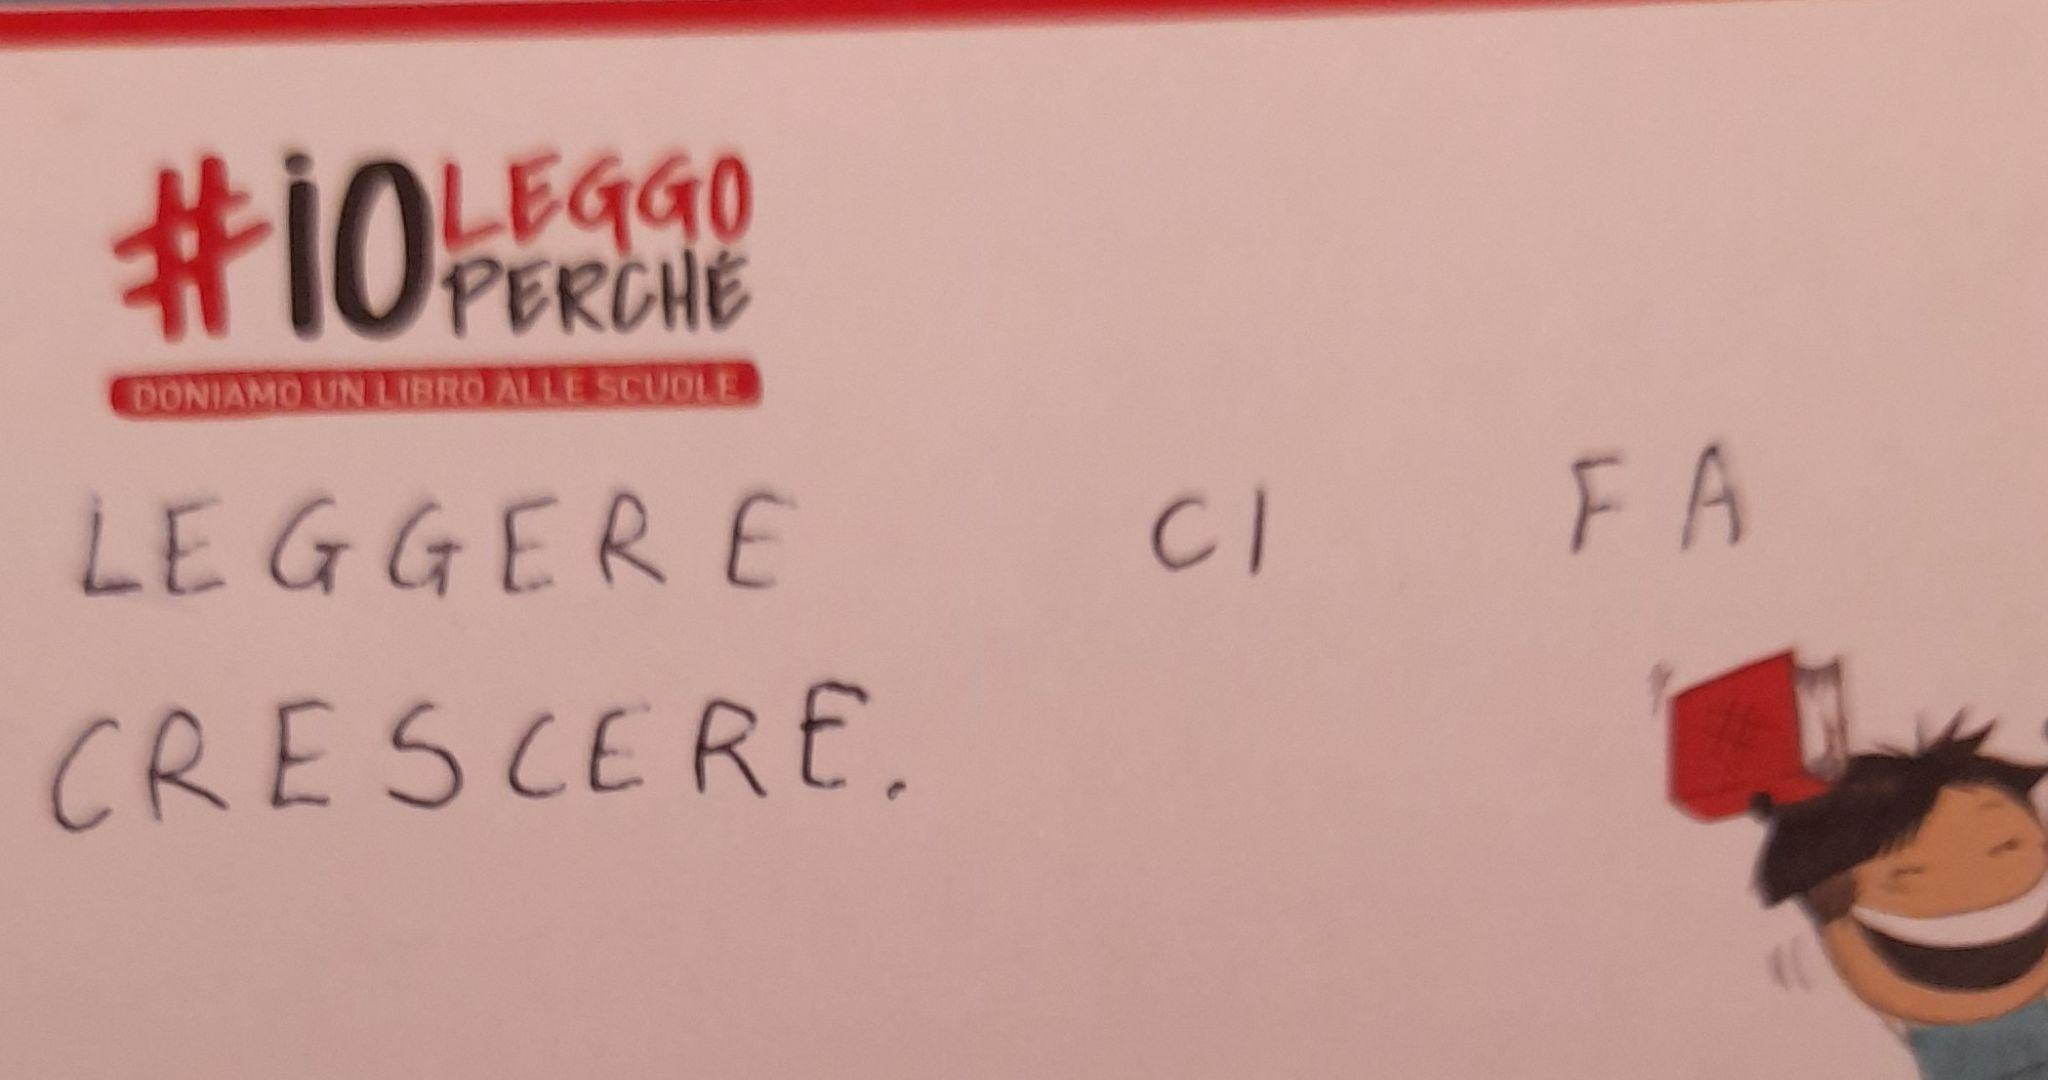 #iO LEGGO
PERCHÉ
DONIAMO UN LIBRO ALLE SCUOLE
LEGGERE CI FA
CRESCERE.